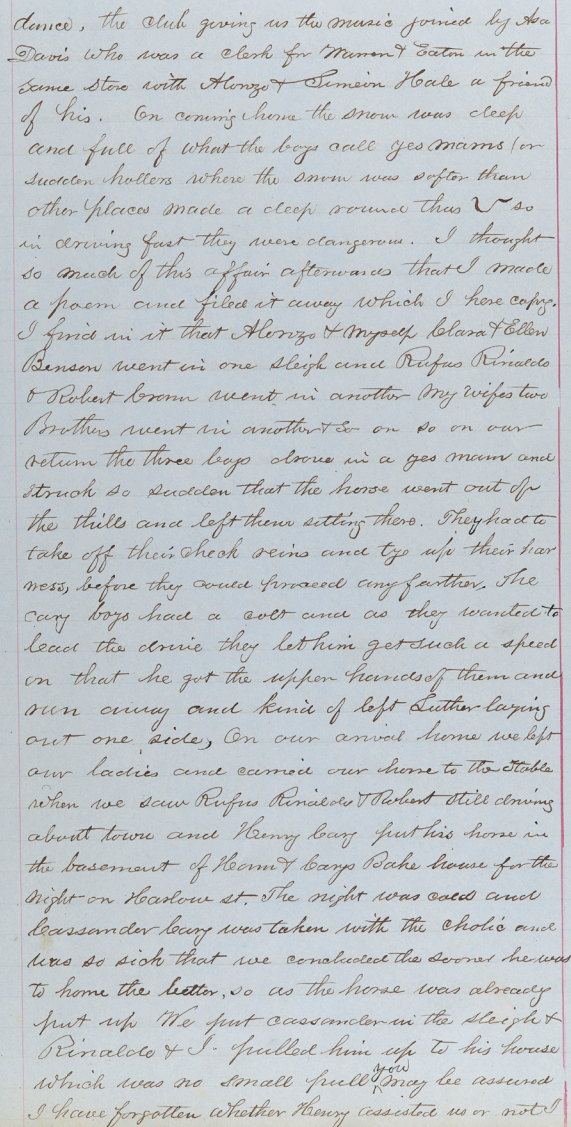 dance, the club giving us the music joined by Asa
Davis who was a clerk for Warren & Eaton in the
same store with Alonzo & Simeon Hale a friend
of his. On coming home the snow was deep
and full of what the boys call yes mams (or
sudden hollers where the snow was softer than
other places made a deep round thus so
in driving fast they were dangerous. I thought
so much of this affair afterwards that I made
a poem and filed it away which I here copy.
I find in it that Alonzo & Myself Clara & Ellen
Benson went in one sleigh and Rufus Rinaldo
& Robert Crann went in another My wifes two
Brothers went in another & So on so on our
return the three boys drove in a yes mam and
struck so sudden that the horse went out of
the thills and left them sitting there. They had to
take off their check reins and tye up their har
ness, before they could proceed any farther. The
cary boys had a colt and as they wanted to
lead the drive they let him get such a speed
on that he got the upper hands of them and
run away and kind of left Luther laying
out one side, On our arival home we left
our ladies and carried our horse to the Stable
when we saw Rufus Rinaldo & Robert still driving
about town and Henry Cary put his horse in
the basement of & Carys Bake house for the
night on Harlow st. The night was cold and
Cassander Cary was taken with the cholic and
was so sick that we concluded the sooner he was
to home the better, so as the horse was already
put up We put cassander in the sleigh &
Rinaldo & I pulled him up to his house
which was no small pull you may be assured
I have forgotten whether Henry assisted us or not I